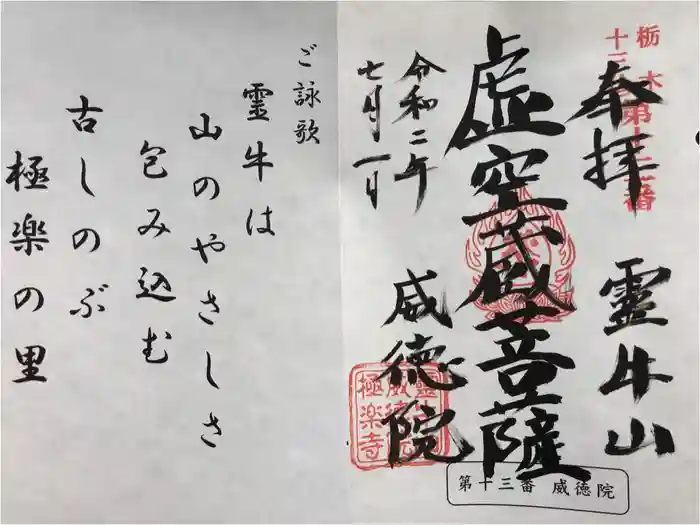 奉拝
霊牛山
虚空蔵菩薩
威徳院
令和二年
七月一日
第十三番 威徳院
極楽寺
ご詠歌
霊牛は
山のやさしさ
包み込む
古しのぶ
極楽の里